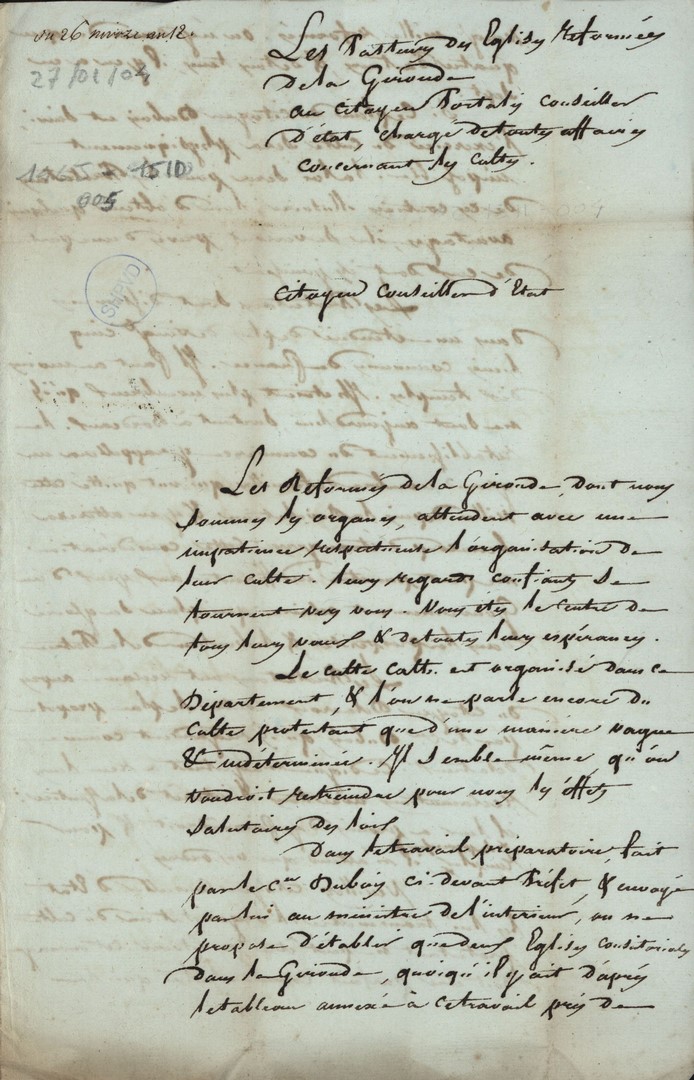 du 26 nivoze an 12.
27/01/04
1065 - 1510
005
SHPVD
Les Pasteurs des Eglises Reformées
de la Gironde
au Citoyen Portalis conseiller
d'état, chargé de toutes affaires
concernant les cultes.
Citoyen Conseiller d'Etat
Les Reformés de la Gironde, dont nous
sommes les organes, attendent avec une
impatience respectueuse l'organisation de
leur culte. leurs regards confians se
tournent vers vous. Vous êtes le centre de
tous leurs voeux & de toutes leurs espérances.
Le culte cath. est organisé dans ce
Département, & l'on ne parle encore du
Culte protestant que d'une manière vague
& indéterminée. Il semble même qu'on
voudroit restreindre pour nous les éffets
salutaires des lois
Dans le travail préparatoire, fait
par le Cen. Dubois ci-devant Préfet, & envoyé
par lui au ministre de l'interieur, on ne
propose d'établir que deux Eglises consistoriales
dans la Gironde, quoiqu'il y ait d'après
le tableau annexé à ce travail près de